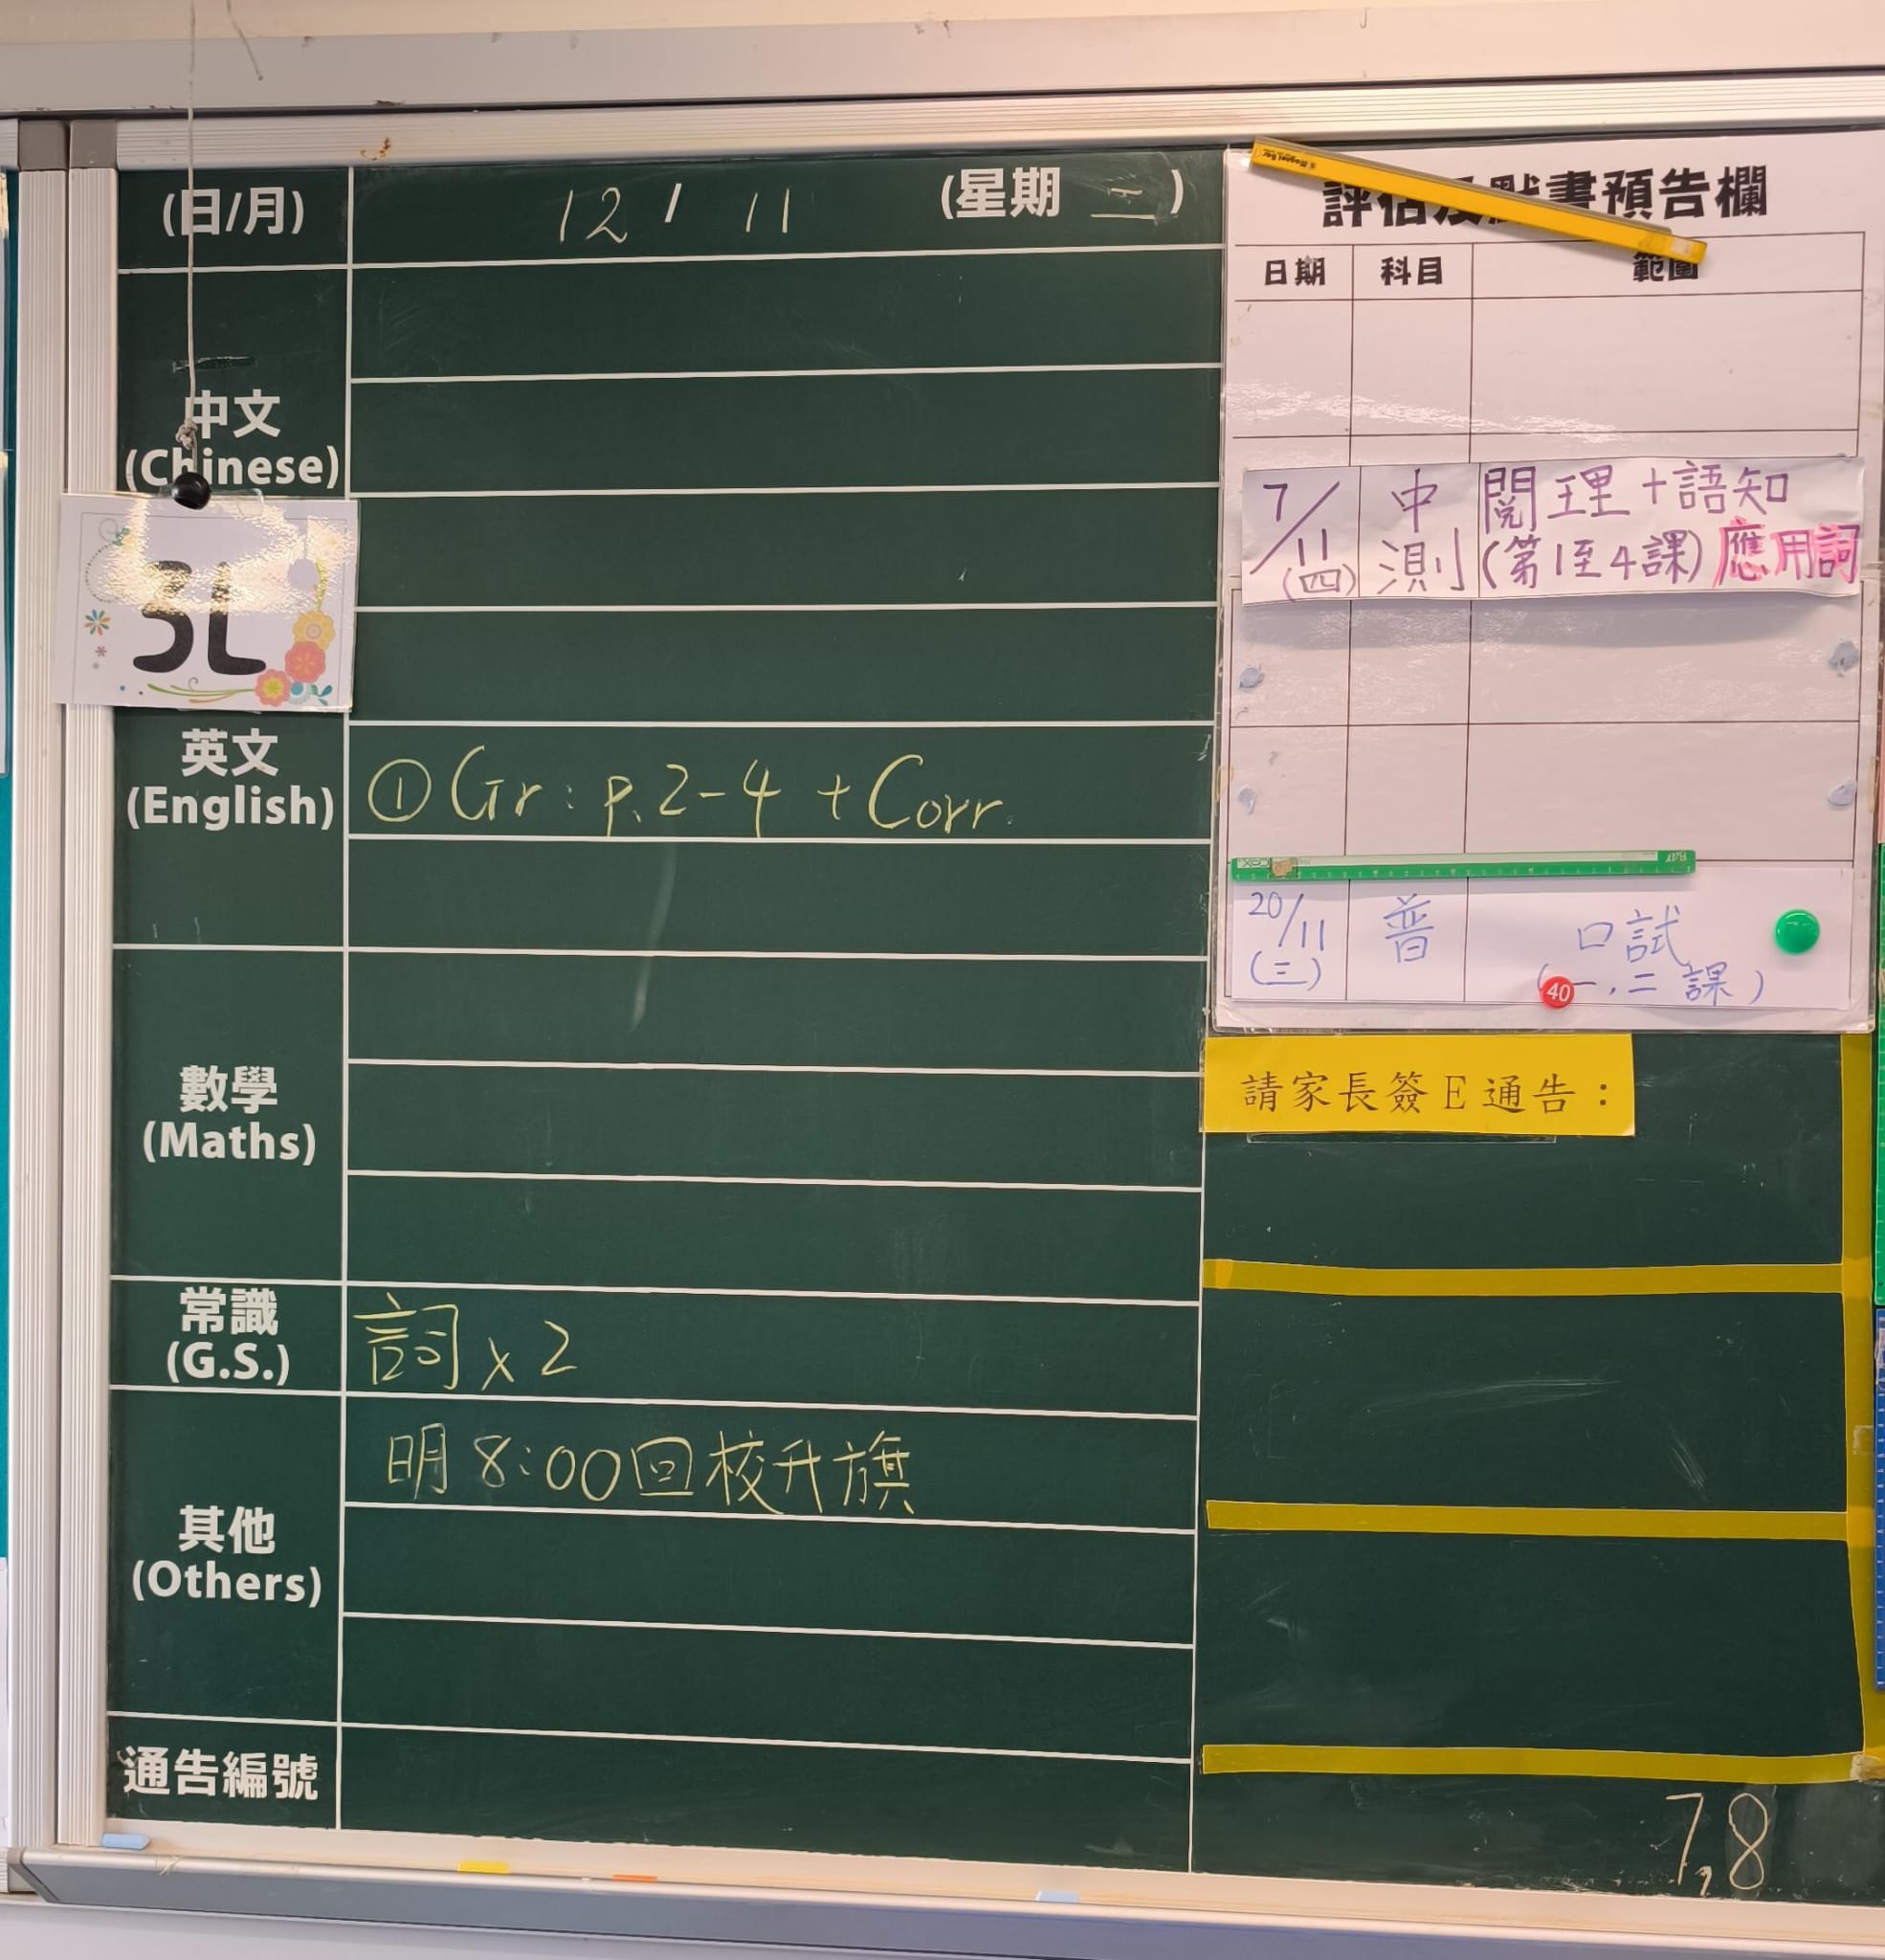 (日/月) 12 / 11 (星期 二)
中文
(Chinese)
3L
英文
(English)
① Gr: p.2-4 + Corr.
數學
(Maths)
常識
(G.S.)
詞 x 2
其他
(Others)
明 8:00 回校升旗
通告編號
評估及默書預告欄
日期 科目 範圍
7/11 (四) 中測 閱理+語知
(第1至4課) 應用詞
20/11 (三) 普 口試
(一,二課)
40
請家長簽E通告：
7,8